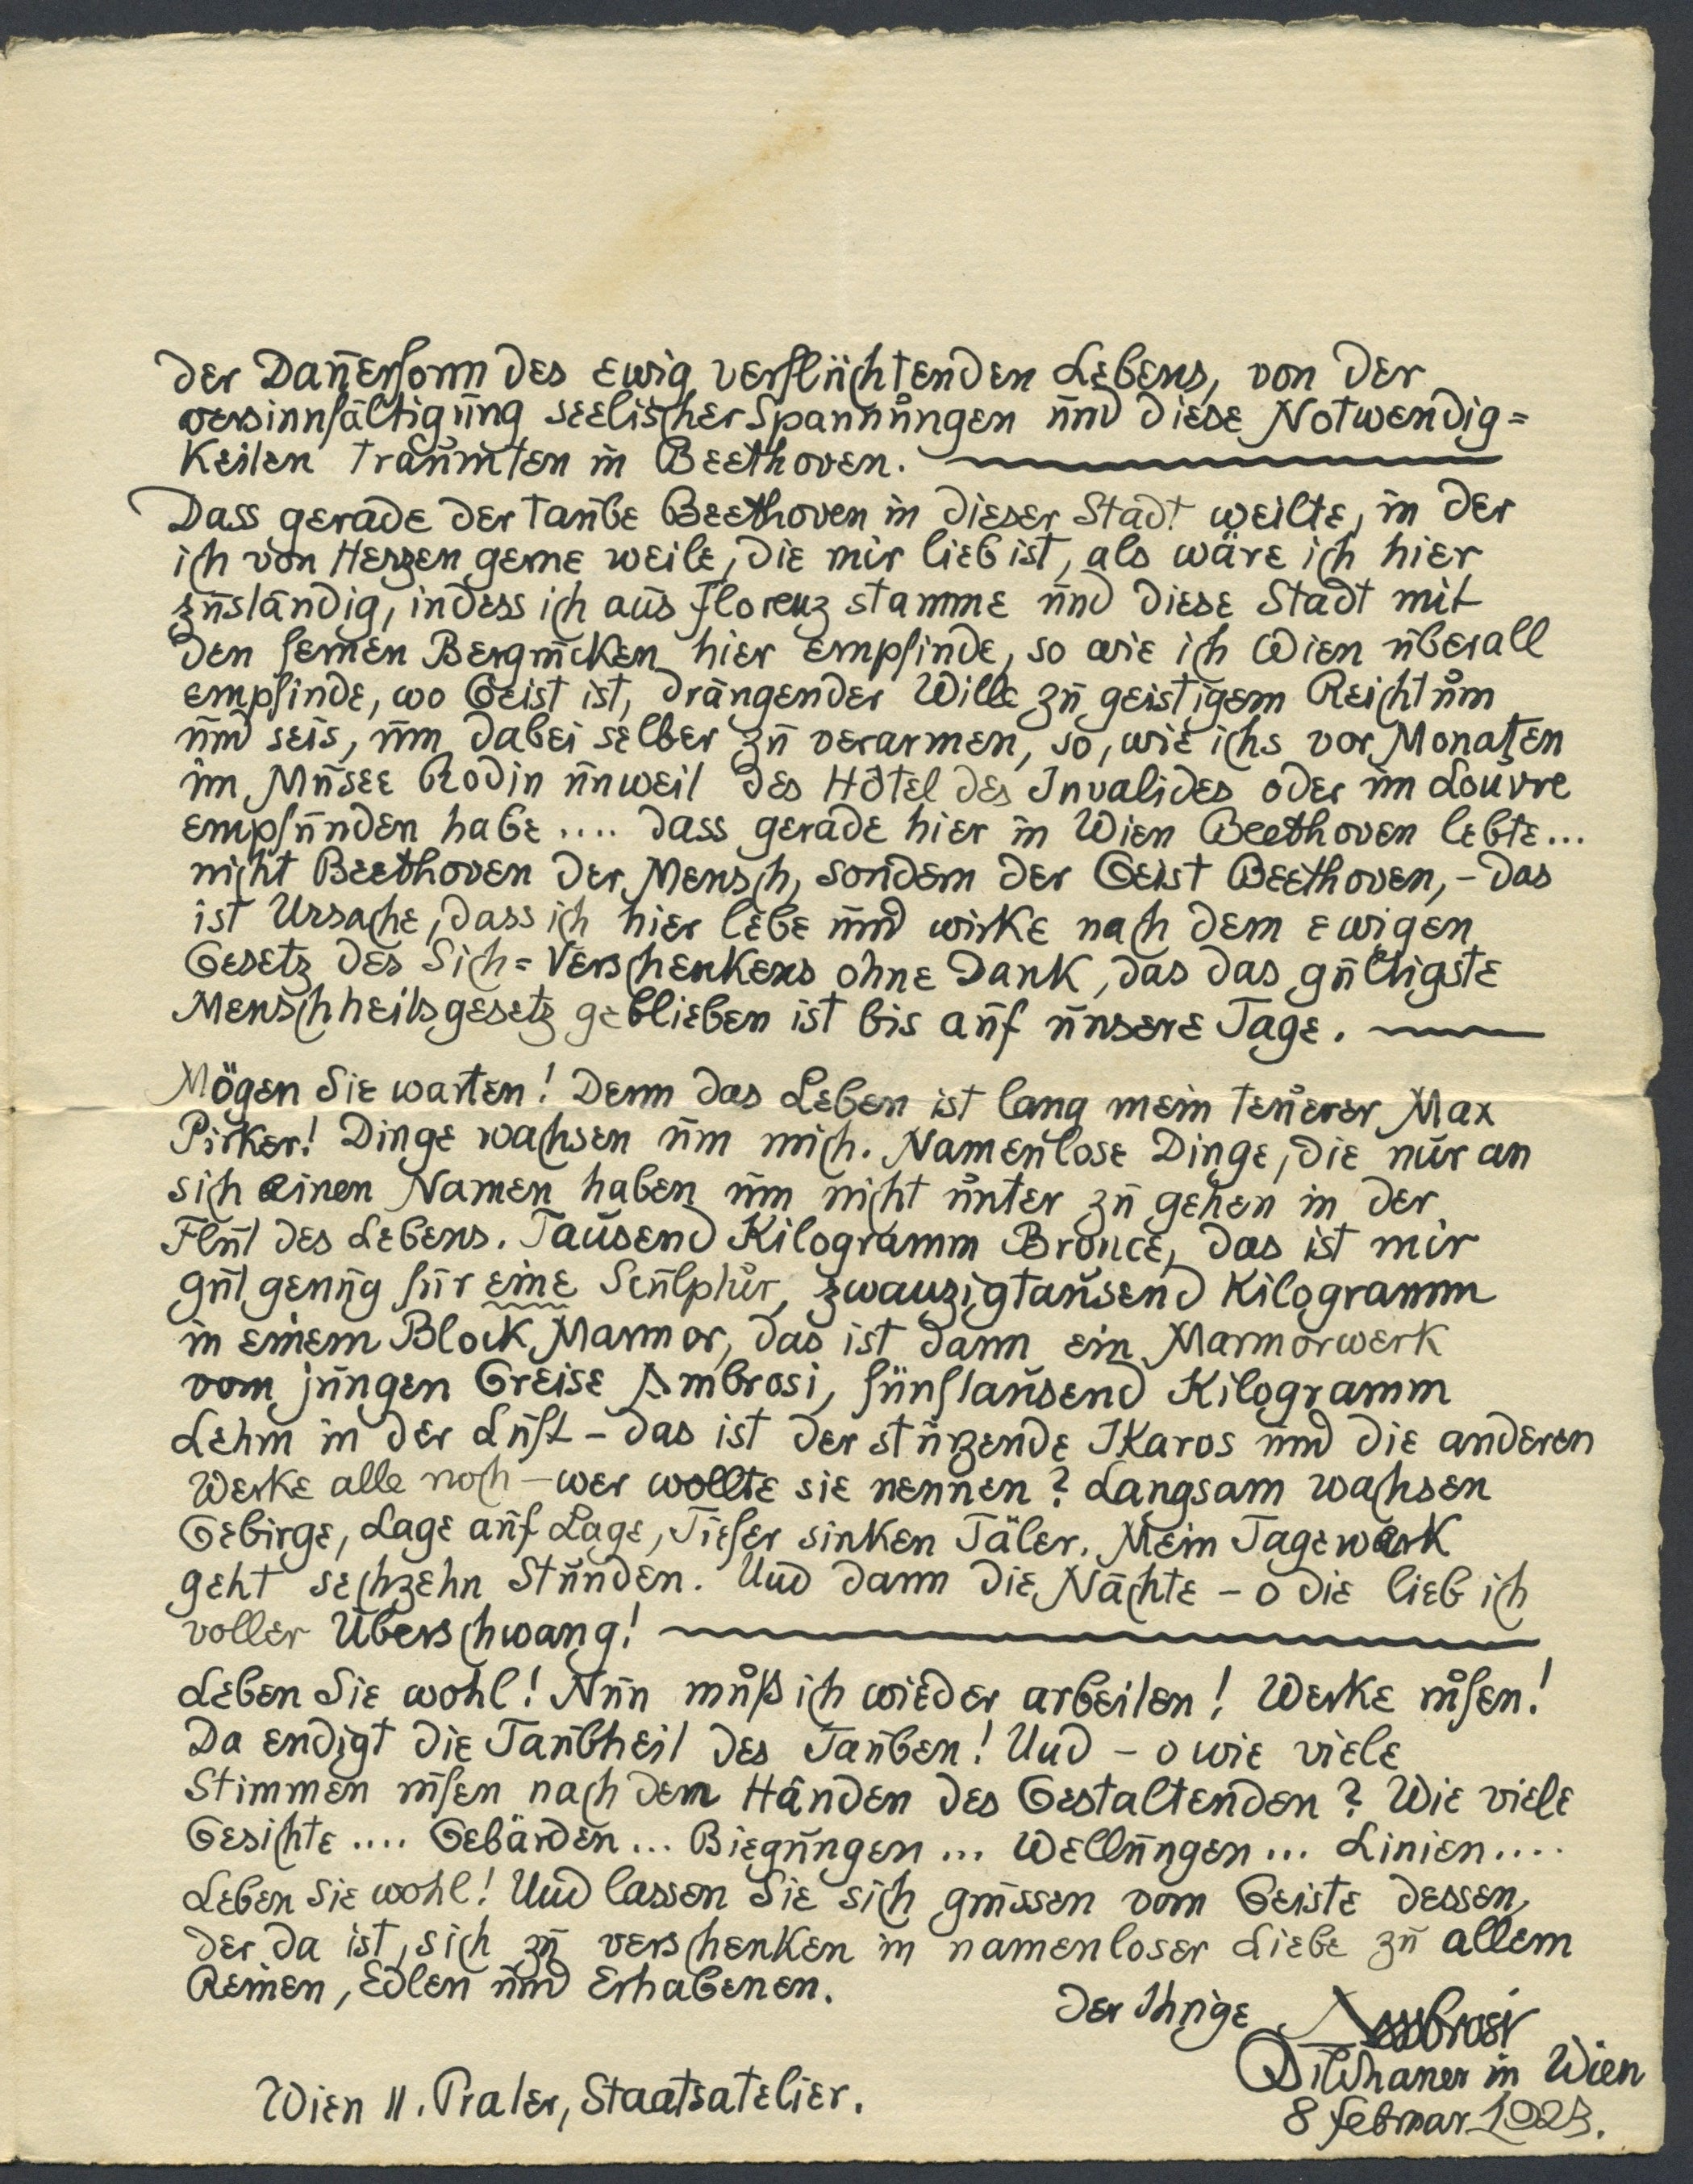 der Dauerform des ewig verflüchtenden Lebens, von der
versinnfältigung seelischer Spannungen und diese Notwendig=
keiten träumten in Beethoven.
Dass gerade der taube Beethoven in dieser Stadt weilte, in der
ich von Herzen gerne weile, die mir lieb ist, als wäre ich hier
zuständig, indess ich aus Florenz stamme und diese Stadt mit
den fernen Bergrücken hier empfinde, so wie ich Wien überall
empfinde, wo Geist ist, drängender Wille zu geistigem Reichtum
und seis, um dabei selber zu verarmen, so, wie ichs vor Monaten
im Musee Rodin unweit des Hôtel des Invalides oder im Louvre
empfunden habe .... dass gerade hier in Wien Beethoven lebte...
nicht Beethoven der Mensch, sondern der Geist Beethoven, - das
ist Ursache, dass ich hier lebe und wirke nach dem ewigen
Gesetz des Sich=Verschenkens ohne Dank, das das gültigste
Menschheitsgesetz geblieben ist bis auf unsere Tage.
Mögen Sie warten! Denn das Leben ist lang mein teuerer Max
Pirker! Dinge wachsen um mich. Namenlose Dinge, die nur an
sich einen Namen haben um nicht unter zu gehen in der
Flut des Lebens. Tausend Kilogramm Bronce, das ist mir
gut genug für eine Sculptur, zwanzigtausend Kilogramm
in einem Block Marmor, das ist dann ein Marmorwerk
vom jungen Greise Ambrosi, fünftausend Kilogramm
Lehm in der Luft - das ist der stürzende Ikaros und die anderen
Werke alle noch - wer wollte sie nennen? Langsam wachsen
Gebirge, Lage auf Lage, Tiefer sinken Täler. Mein Tagewerk
geht sechzehn Stunden. Und dann die Nächte - o die lieb ich
voller Überschwang!
Leben Sie wohl! Nun muß ich wieder arbeiten! Werke rufen!
Da endigt die Taubheit des Tauben! Und - o wie viele
Stimmen rufen nach dem Händen des Gestaltenden? Wie viele
Gesichte .... Gebärden ... Biegungen ... Wellungen ... Linien ....
Leben Sie wohl! Und lassen Sie sich grüssen vom Geiste dessen,
der da ist, sich zu verschenken in namenloser Liebe zu allem
Reinen, Edlen und Erhabenen.
Der Ihrige Ambrosi
Bildhauer in Wien
Wien II. Prater, Staatsatelier.
8 februar 1923.